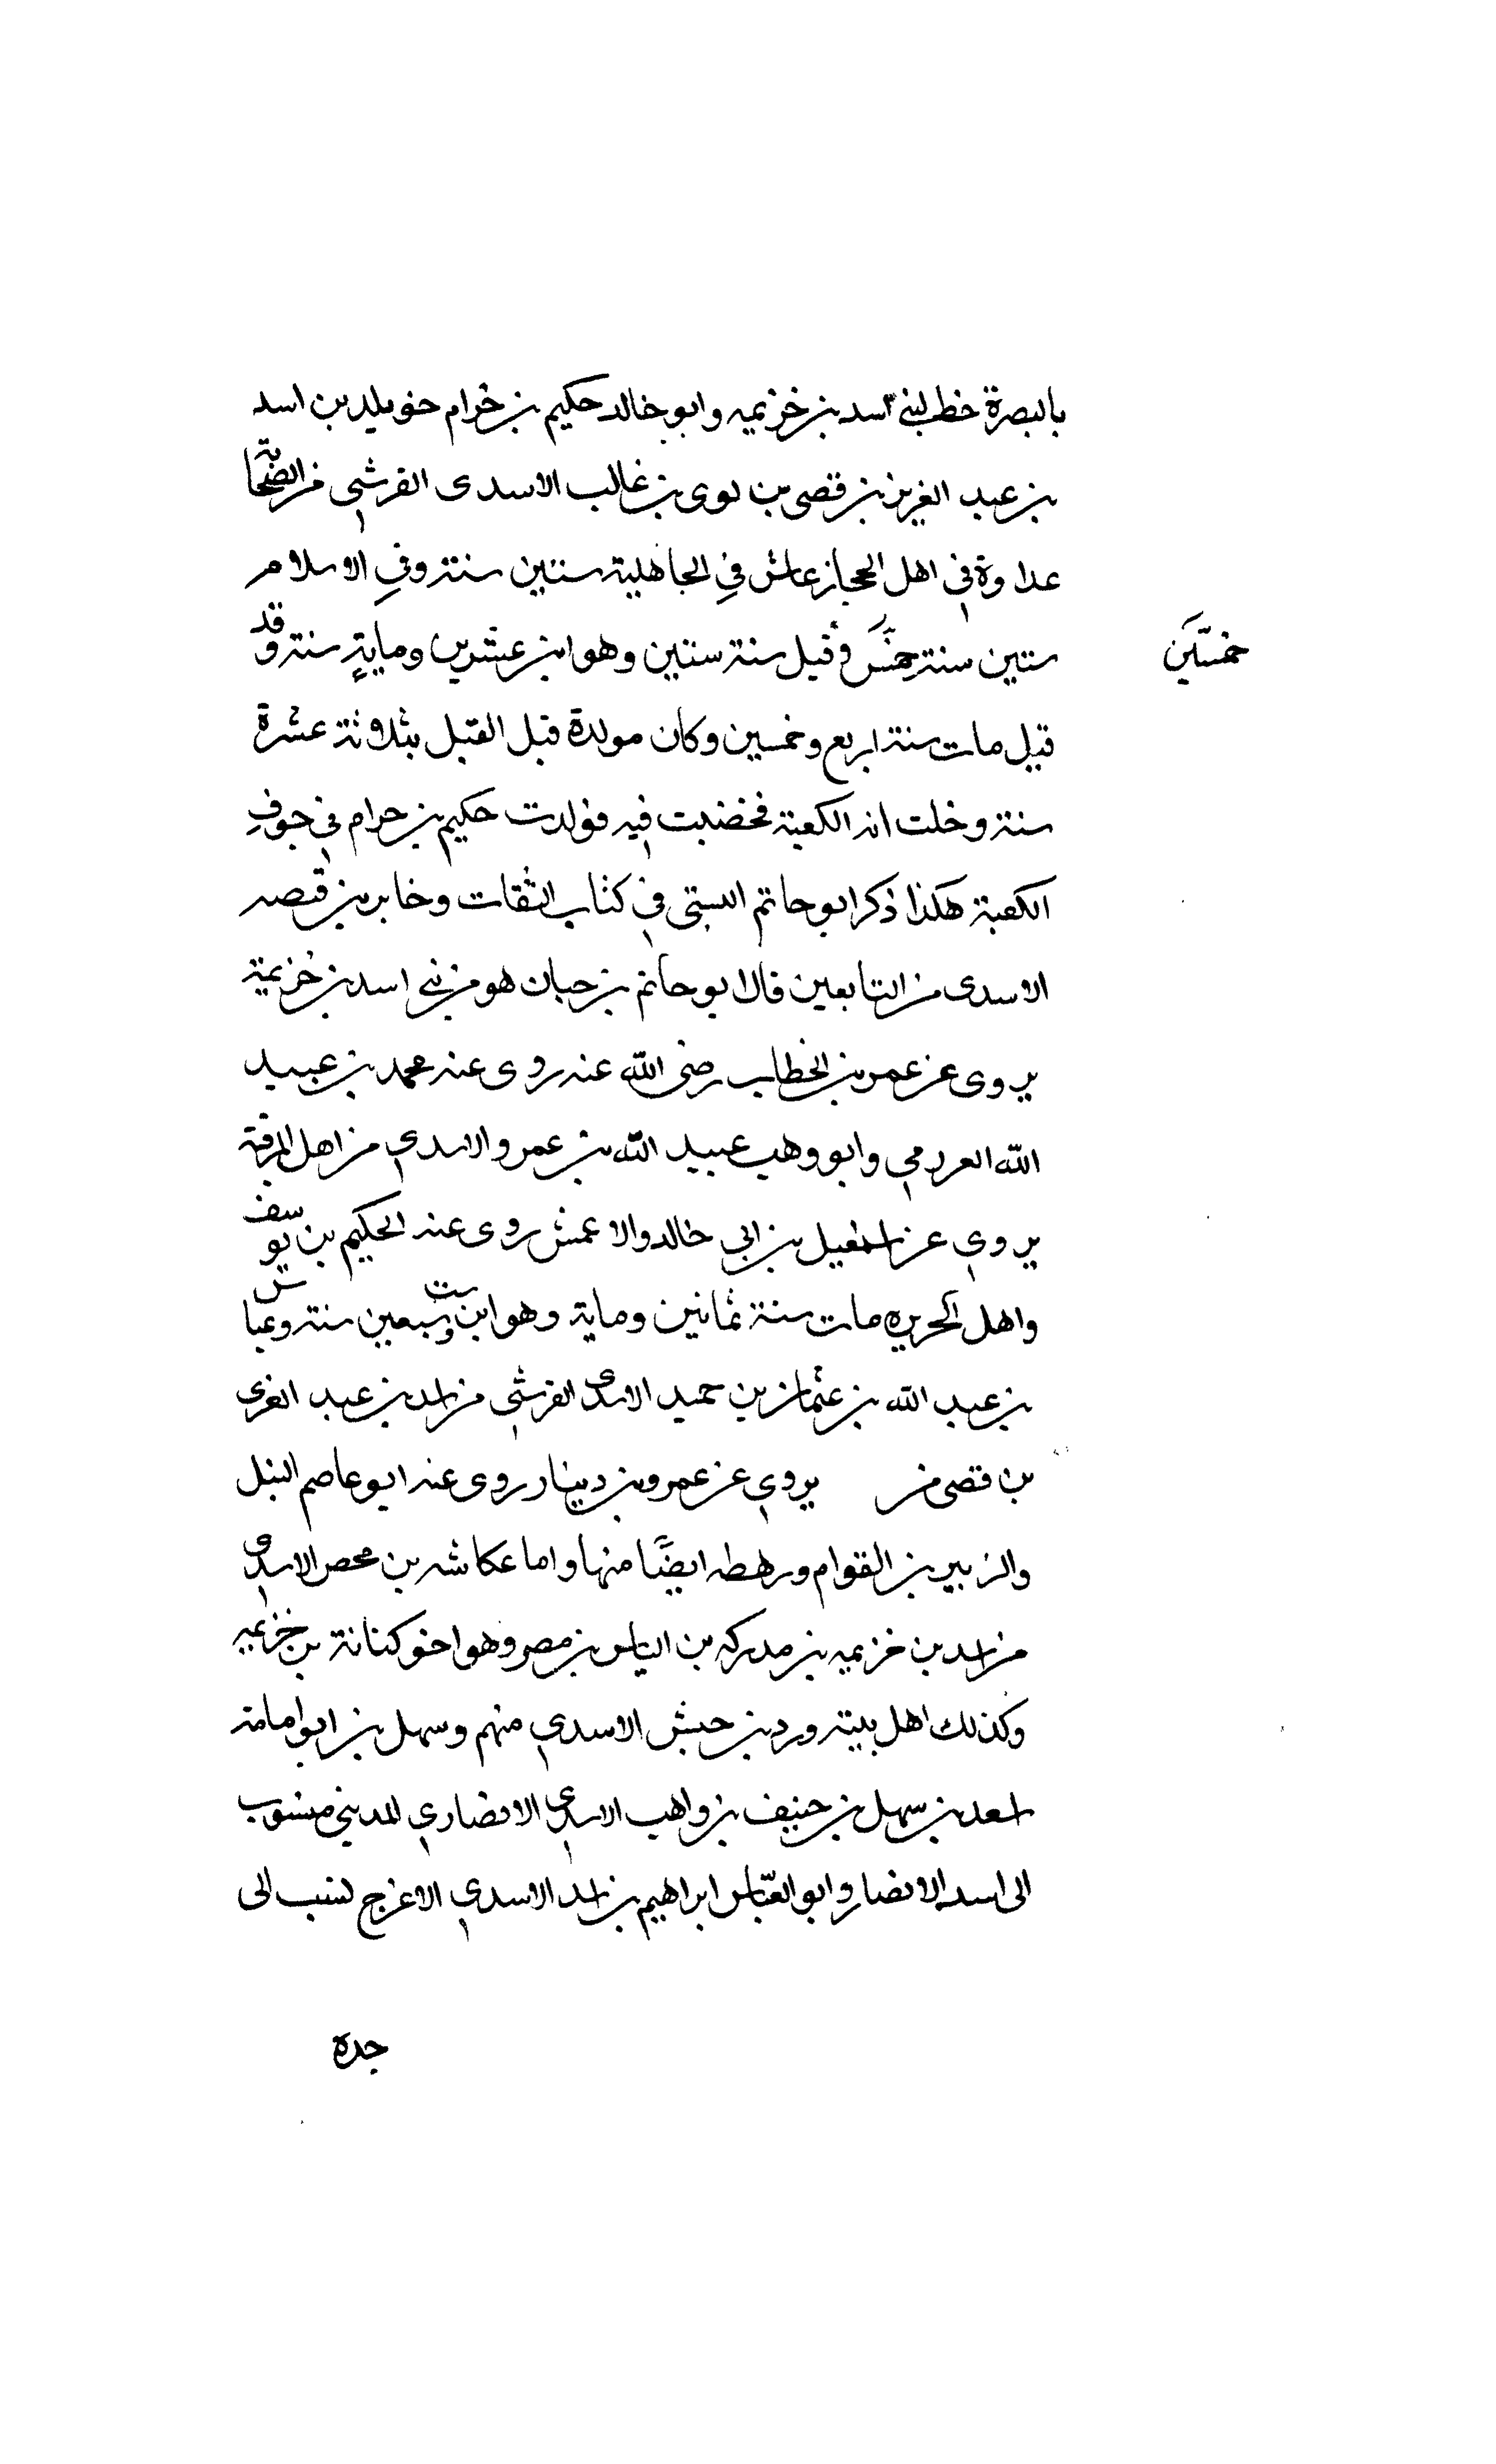 بالبصرة خط لبني اسد بن خزيمه وابو خالد حكيم بن خرام خويلد بن اسد
بن عبد الغزيز بن قصى بن لوى بن غالب الاسدى القرشي من الصحابة
عداوة في اهل الحجاز عاش في الجاهلية ستين سنة وفي الاسلام
ستين سنة وقيل سنة ستين وهو ابن عشرين وماية سنة وقد
خمسين
قيل مات سنة اربع وخمسين وكان مولدة قبل الفيل بثلاوثة عشرة
سنة وخلت انه الكعبة فخضبت فيه فولدت حكيم بن حرام في جوف
الكعبة هكذا ذكر ابو حاتم البستي في كتاب الثقات وخابر بن قبصه
الاسدى من التابعين قال ابو حاتم بن حبان هو من بني اسد بن خزيمة
يروى عن عمر بن الخطاب رضى الله عنه روى عنه محمد بن عبيد
الله العردمي وابو وهب عبيد الله بن عمرو الاسدي من اهل الرقة
يروي عن اسمعيل بن ابي خالد والاعمش روى عنه الحكيم بن يوسف
واهل الحريره مات سنة ثمانين وماية وهو ابن ست وسبعين سنة وعباس
بن عبد الله بن عثمان بن حميد الاسدى القرشي من اسد بن عبد الغرى
بن قصى من يروي عن عمرو بن دينار روى عنه ابو عاصم النبل
والزبير بن القوام ورهطه ايضًا منها واما عكاشه بن محص الاسدي
من اسد بن خزيمه بن مدركه بن الياس بن مصر وهو اخو كنانة بن خزيمه
وكذلك اهل بيته ورد بن حبش الاسدي منهم وسهل بن ابو امامة
اسعد بن سهل بن حنيف بن واهب الاسدي الانصاري المديني منسوب
الى اسد الانصار وابو العبّاس ابراهيم بن اسد الاسدي الاعرج لنسب الى
جدة